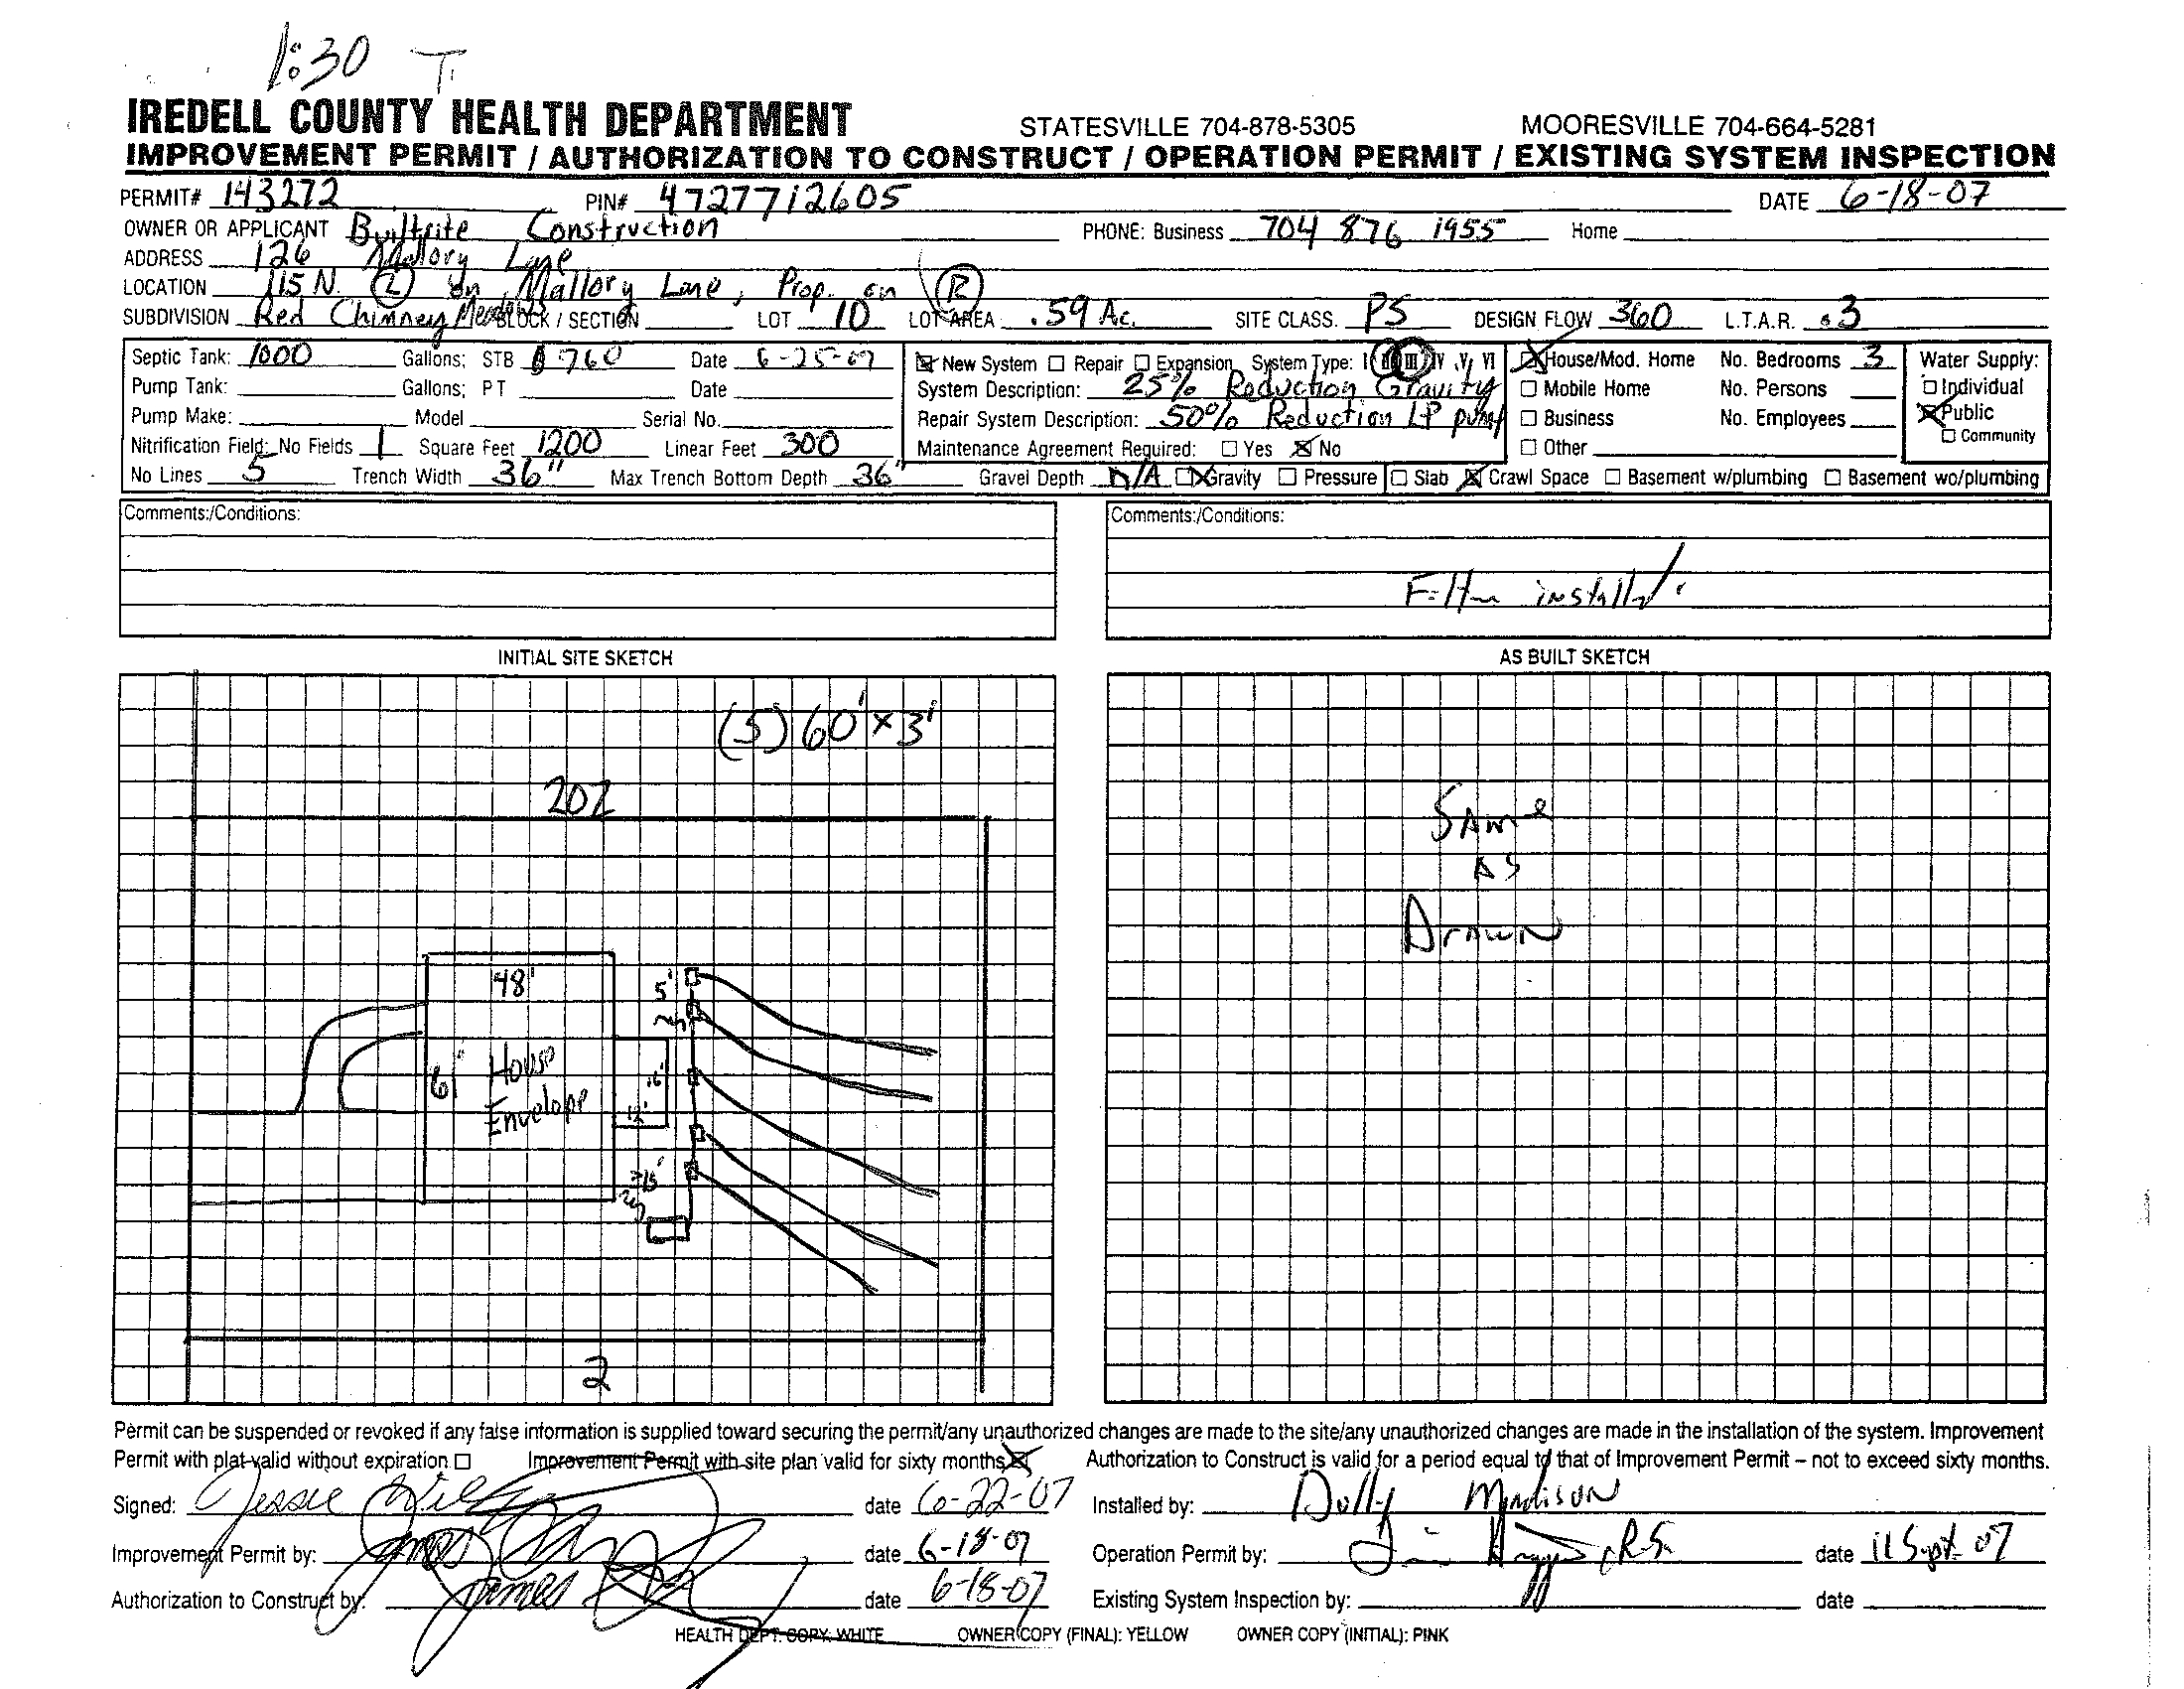 1:30 T
IREDELL COUNTY HEALTH DEPARTMENT STATESVILLE 704-878-5305 MOORESVILLE 704-664-5281
IMPROVEMENT PERMIT / AUTHORIZATION TO CONSTRUCT / OPERATION PERMIT / EXISTING SYSTEM INSPECTION
PERMIT# 143272 PIN# 4727712605 DATE 6-18-07
OWNER OR APPLICANT Builtrite Construction PHONE: Business 704 876 1955 Home
ADDRESS 126 Mallory Lane
LOCATION 115 N. (L) on Mallory Lane, Prop. on (R)
SUBDIVISION Red Chimney Meadows BLOCK / SECTION LOT 10 LOT AREA .59 Ac. SITE CLASS. PS DESIGN FLOW 360 L.T.A.R. .3
Septic Tank: 1000 Gallons; STB 760 Date 6-25-07
Pump Tank: Gallons; PT Date
Pump Make: Model Serial No.
Nitrification Field: No Fields 1 Square Feet 1200 Linear Feet 300
No Lines 5 Trench Width 36" Max Trench Bottom Depth 36" Gravel Depth N/A ☒ Gravity ☐ Pressure ☐ Slab ☒ Crawl Space ☐ Basement w/plumbing ☐ Basement wo/plumbing
☒ New System ☐ Repair ☐ Expansion System Type: I II III IV V VI
System Description: 25% Reduction Gravity
Repair System Description: 50% Reduction LP pump
Maintenance Agreement Required: ☐ Yes ☒ No
☒ House/Mod. Home No. Bedrooms 3
☐ Mobile Home No. Persons
☐ Business No. Employees
☐ Other
Water Supply:
☐ Individual
☒ Public
☐ Community
Comments:/Conditions:
Comments:/Conditions:
Filter installed.
INITIAL SITE SKETCH
(5) 60' x 3'
202
48'
5'
61' House
Envelope
16'
12'
>15'
2
AS BUILT SKETCH
SAme
AS
DrAwN
Permit can be suspended or revoked if any false information is supplied toward securing the permit/any unauthorized changes are made to the site/any unauthorized changes are made in the installation of the system. Improvement
Permit with plat valid without expiration ☐ Improvement Permit with site plan valid for sixty months ☒ Authorization to Construct is valid for a period equal to that of Improvement Permit – not to exceed sixty months.
Signed: Jessie date 6-22-07 Installed by: Dolly Madison
Improvement Permit by: James date 6-18-07 Operation Permit by: R.S. date 11 Sept 07
Authorization to Construct by: James date 6-18-07 Existing System Inspection by: date
HEALTH DEPT. COPY: WHITE OWNER COPY (FINAL): YELLOW OWNER COPY (INITIAL): PINK